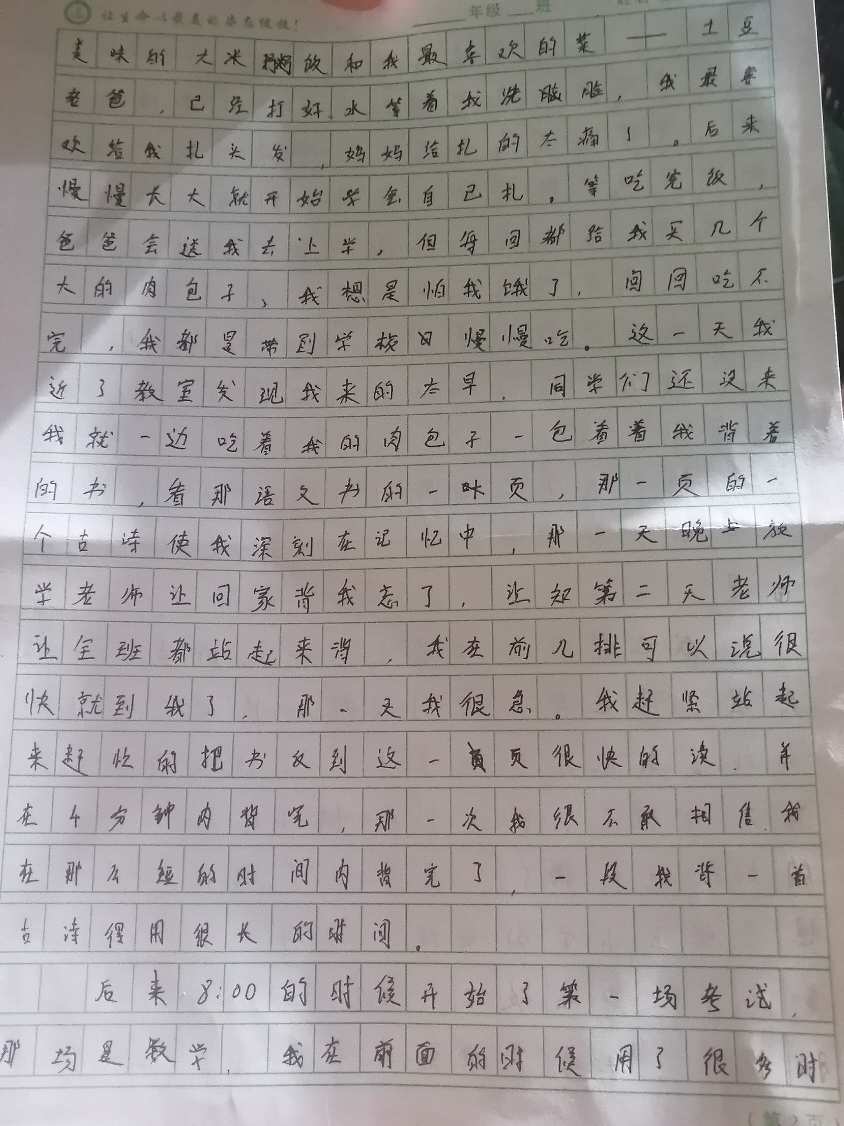 让生命以最美的姿态绽放!
年级 班
美味的大米粥饭和我最喜欢的菜——土豆
老爸,已经打好水等着我洗脸脸,我最喜
欢给我扎头发,妈妈给扎的太痛了。后来
慢慢长大就开始学会自己扎。等吃完饭,
爸爸会送我去上学,但每回都给我买几个
大的肉包子,我想是怕我饿了,回回吃不
完,我都是带到学校 慢慢吃。这一天我
近了教室发现我来的太早,同学们还没来
我就一边吃着我的肉包子一包看着我背着
的书,看那语文书的一 页,那一页的一
个古诗使我深刻在记忆中,那一天晚上放
学老师让回家背我忘了,让知第二天老师
让全班都站起来背,我在前几排可以说很
快就到我了,那一天我很急。我赶紧站起
来赶忙的把书反到这一页很快的读,并
在4分钟内背完,那一次我很不敢相信,我
在那么短的时间内背完了,一段我背一首
古诗得用很长的时间。
后来8:00的时候开始了第一场考试,
那场是数学,我在前面的时候用了很多时
(第2页)